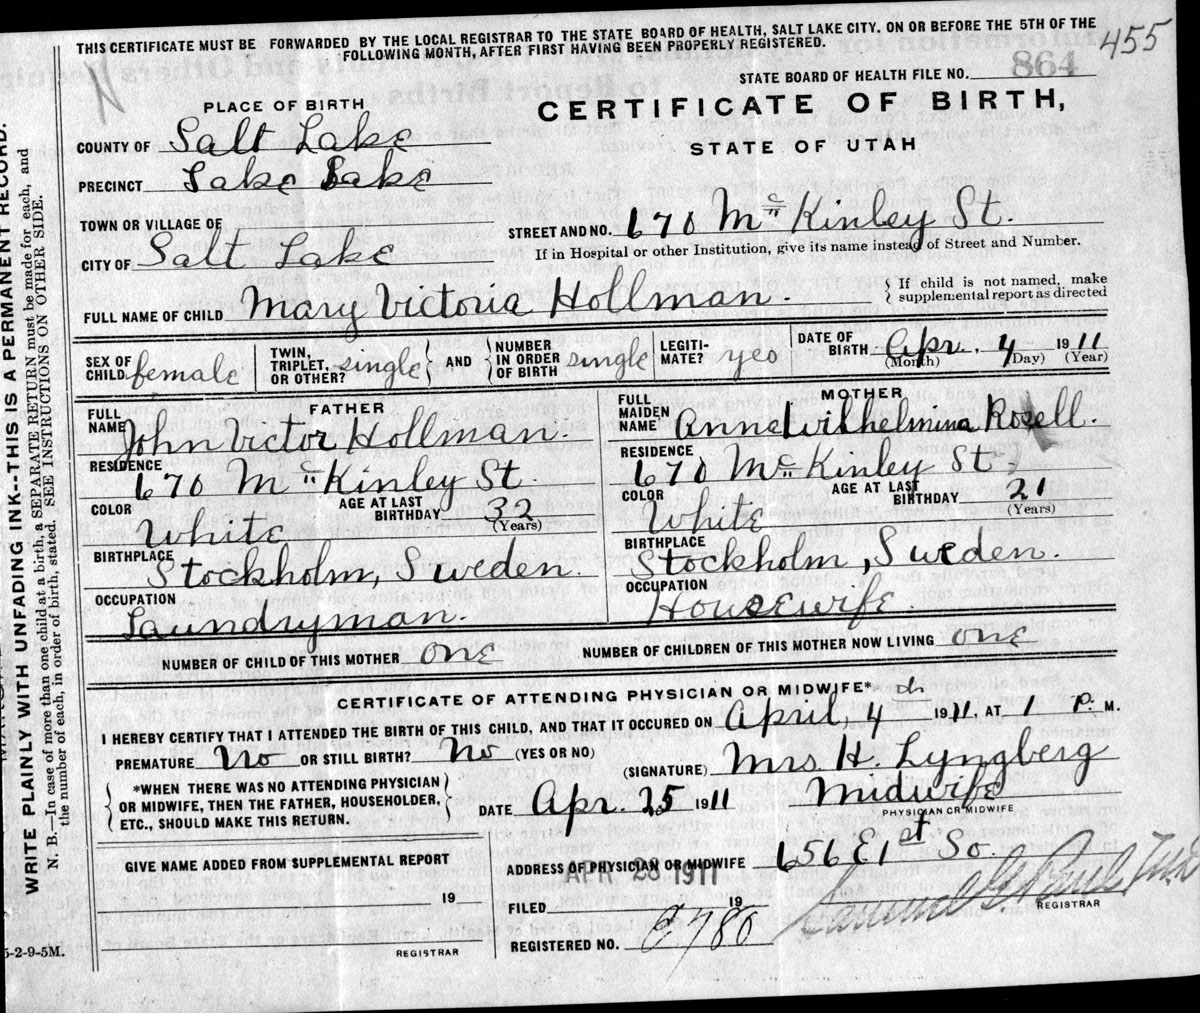 455
THIS CERTIFICATE MUST BE FORWARDED BY THE LOCAL REGISTRAR TO THE STATE BOARD OF HEALTH, SALT LAKE CITY. ON OR BEFORE THE 5TH OF THE
FOLLOWING MONTH, AFTER FIRST HAVING BEEN PROPERLY REGISTERED.
STATE BOARD OF HEALTH FILE NO. 864
PLACE OF BIRTH
CERTIFICATE OF BIRTH,
STATE OF UTAH
COUNTY OF Salt Lake
PRECINCT Lake
TOWN OR VILLAGE OF
STREET AND NO. 670 Mc Kinley St.
CITY OF Salt Lake
If in Hospital or other Institution, give its name instead of Street and Number.
FULL NAME OF CHILD Mary Victoria Hollman.
If child is not named, make
supplemental report as directed
SEX OF
CHILD female
TWIN,
TRIPLET,
OR OTHER? single
AND
NUMBER
IN ORDER
OF BIRTH single
LEGITI-
MATE? yes
DATE OF
BIRTH Apr. 4 1911
(Month) (Day) (Year)
FATHER
FULL
NAME John Victor Hollman.
RESIDENCE
670 Mc Kinley St.
COLOR White
AGE AT LAST
BIRTHDAY 32
(Years)
BIRTHPLACE
Stockholm, Sweden.
OCCUPATION
Laundryman.
MOTHER
FULL
MAIDEN
NAME Anna Wilhelmina Rosell.
RESIDENCE
670 Mc Kinley St
COLOR White
AGE AT LAST
BIRTHDAY 21
(Years)
BIRTHPLACE
Stockholm, Sweden.
OCCUPATION
Housewife.
NUMBER OF CHILD OF THIS MOTHER one
NUMBER OF CHILDREN OF THIS MOTHER NOW LIVING one
CERTIFICATE OF ATTENDING PHYSICIAN OR MIDWIFE*
I HEREBY CERTIFY THAT I ATTENDED THE BIRTH OF THIS CHILD, AND THAT IT OCCURED ON April, 4 1911, AT 1 P. M.
PREMATURE No OR STILL BIRTH? No (YES OR NO)
(SIGNATURE) Mrs H. Lyngberg
*WHEN THERE WAS NO ATTENDING PHYSICIAN
OR MIDWIFE, THEN THE FATHER, HOUSEHOLDER,
ETC., SHOULD MAKE THIS RETURN.
DATE Apr. 25 1911
Midwife
PHYSICIAN OR MIDWIFE
GIVE NAME ADDED FROM SUPPLEMENTAL REPORT
19
REGISTRAR
ADDRESS OF PHYSICIAN OR MIDWIFE 656 E 1st So.
APR 28 1911
FILED 19
REGISTRAR
REGISTERED NO. 780
5-2-9-5M.
WRITE PLAINLY WITH UNFADING INK--THIS IS A PERMANENT RECORD.
N. B.—In case of more than one child at a birth, a SEPARATE RETURN must be made for each, and
the number of each, in order of birth, stated. SEE INSTRUCTIONS ON OTHER SIDE.